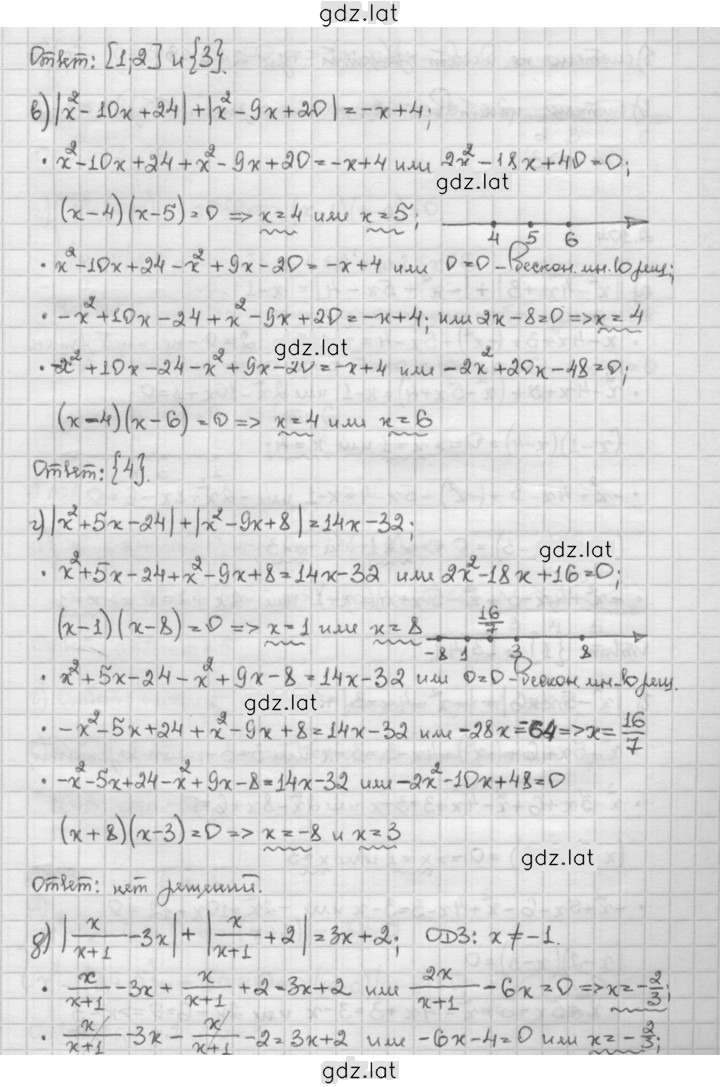 gdz.lat
Ответ: [1,2] и {3}.
в) |x² - 10x + 24| + |x² - 9x + 20| = -x + 4;
· x² - 10x + 24 + x² - 9x + 20 = -x + 4 или 2x² - 18x + 40 = 0;
gdz.lat
(x - 4)(x - 5) = 0 => x = 4 или x = 5;
4 5 6
· x² - 10x + 24 - x² + 9x - 20 = -x + 4 или 0 = 0 - бескон. мн. во реш;
· -x² + 10x - 24 + x² - 9x + 20 = -x + 4; или 2x - 8 = 0 => x = 4
gdz.lat
· -x² + 10x - 24 - x² + 9x - 20 = -x + 4 или -2x² + 20x - 48 = 0;
(x - 4)(x - 6) = 0 => x = 4 или x = 6
Ответ: {4}.
г) |x² + 5x - 24| + |x² - 9x + 8| = 14x - 32;
gdz.lat
· x² + 5x - 24 + x² - 9x + 8 = 14x - 32 или 2x² - 18x + 16 = 0;
(x - 1)(x - 8) = 0 => x = 1 или x = 8
-8 1 16/7 3 8
· x² + 5x - 24 - x² + 9x - 8 = 14x - 32 или 0 = 0 - бескон. мн. во реш.
gdz.lat
· -x² - 5x + 24 + x² - 9x + 8 = 14x - 32 или -28x = -64 => x = 16/7
· -x² - 5x + 24 - x² + 9x - 8 = 14x - 32 или -2x² - 10x + 48 = 0
(x + 8)(x - 3) = 0 => x = -8 и x = 3
gdz.lat
Ответ: нет решений.
д) |x/(x+1) - 3x| + |x/(x+1) + 2| = 3x + 2; ОДЗ: x ≠ -1.
· x/(x+1) - 3x + x/(x+1) + 2 = 3x + 2 или 2x/(x+1) - 6x = 0 => x = -2/3;
· x/(x+1) - 3x - x/(x+1) - 2 = 3x + 2 или -6x - 4 = 0 или x = -2/3;
gdz.lat